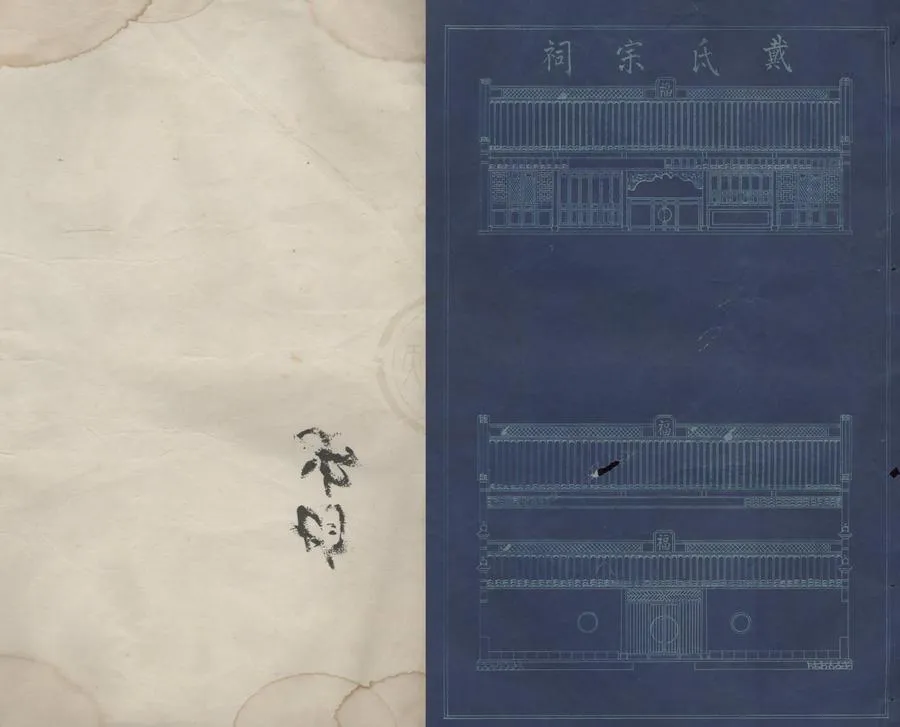 戴氏宗祠
福
福
福